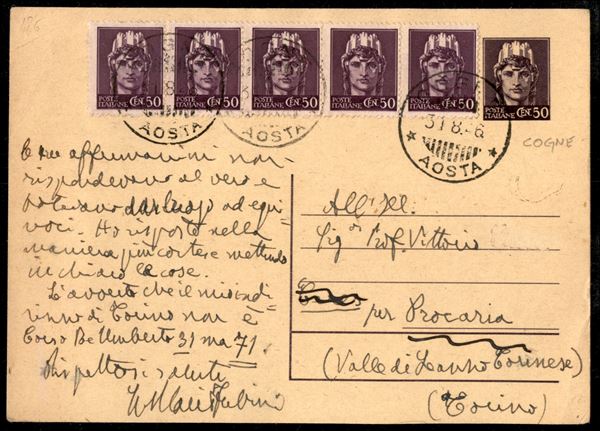 POSTE ITALIANE CENT 50
POSTE ITALIANE CENT 50
POSTE ITALIANE CENT 50
POSTE ITALIANE CENT 50
POSTE ITALIANE CENT 50
POSTE ITALIANE CENT 50
POSTE ITALIANE CENT 50
AOSTA
AOSTA
31.8.46
AOSTA
COGNE
affermazioni non
rispondevano al vero e
potevano dar luogo ad equi-
voci. Ho risposto nella
maniera più cortese mettendo
in chiaro le cose.
L'avverto che il mio indi-
rizzo di Torino non è
Corso Re Umberto 31 ma 71.
Rispettosi saluti
All' Ill.
Sig. Prof. Vittorio
per Procaria
(Valle di Lanzo Torinese)
(Torino)